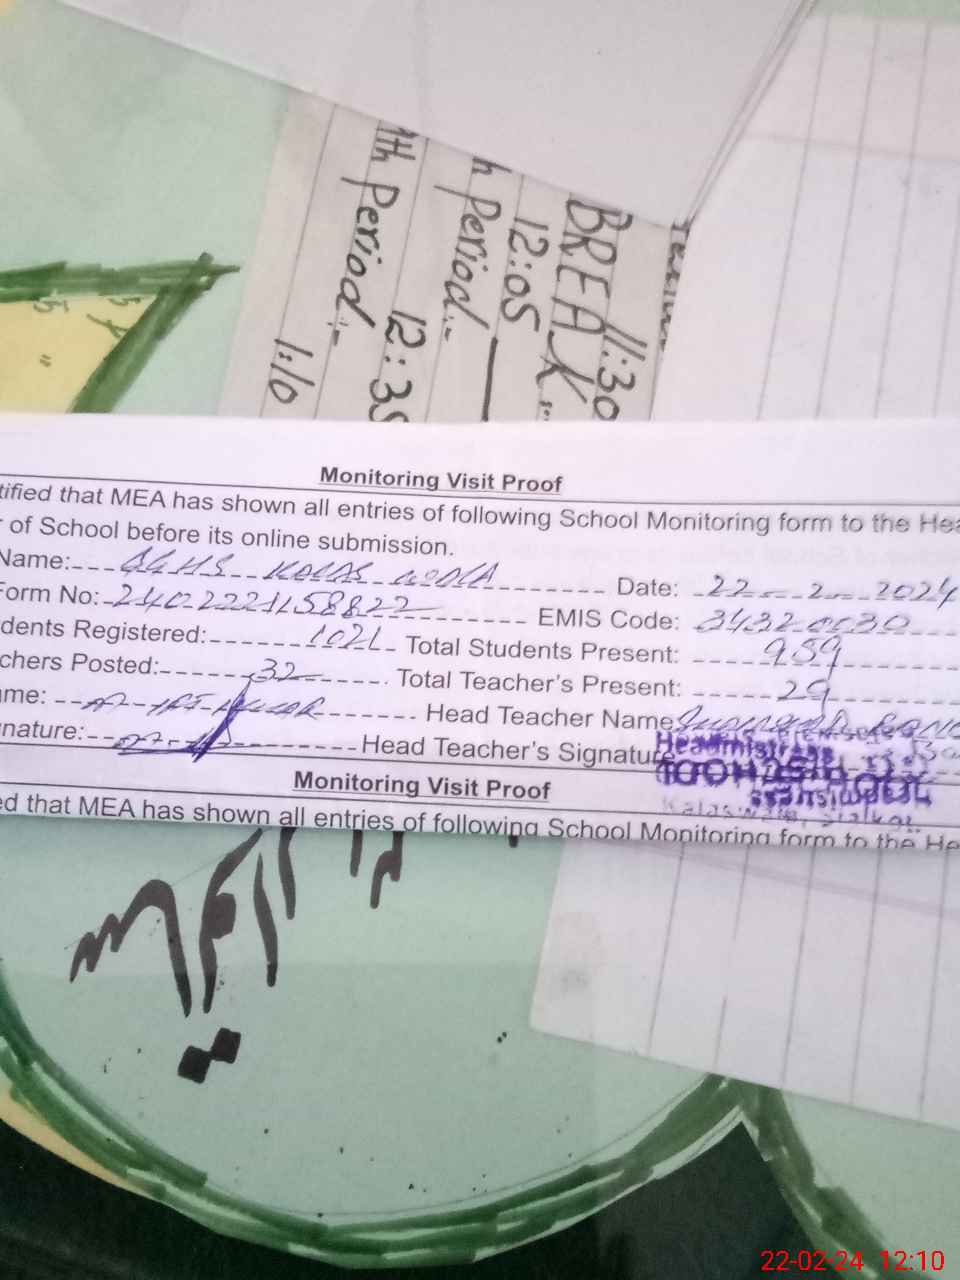 nth Period:-
1:10
h Period:-
12:35
12:05
BREAK:
11:30
Monitoring Visit Proof
tified that MEA has shown all entries of following School Monitoring form to the Hea
r of School before its online submission.
Name: GGHS KALAS WALA Date: 22-2-2024
Form No: 2402221158822 EMIS Code: 34320030
dents Registered: 1021 Total Students Present: 959
chers Posted: 32 Total Teacher's Present: 29
ame: Head Teacher Name
nature: Head Teacher's Signature
Headmistress
Monitoring Visit Proof
ed that MEA has shown all entries of following School Monitoring form to the He
22-02-24 12:10